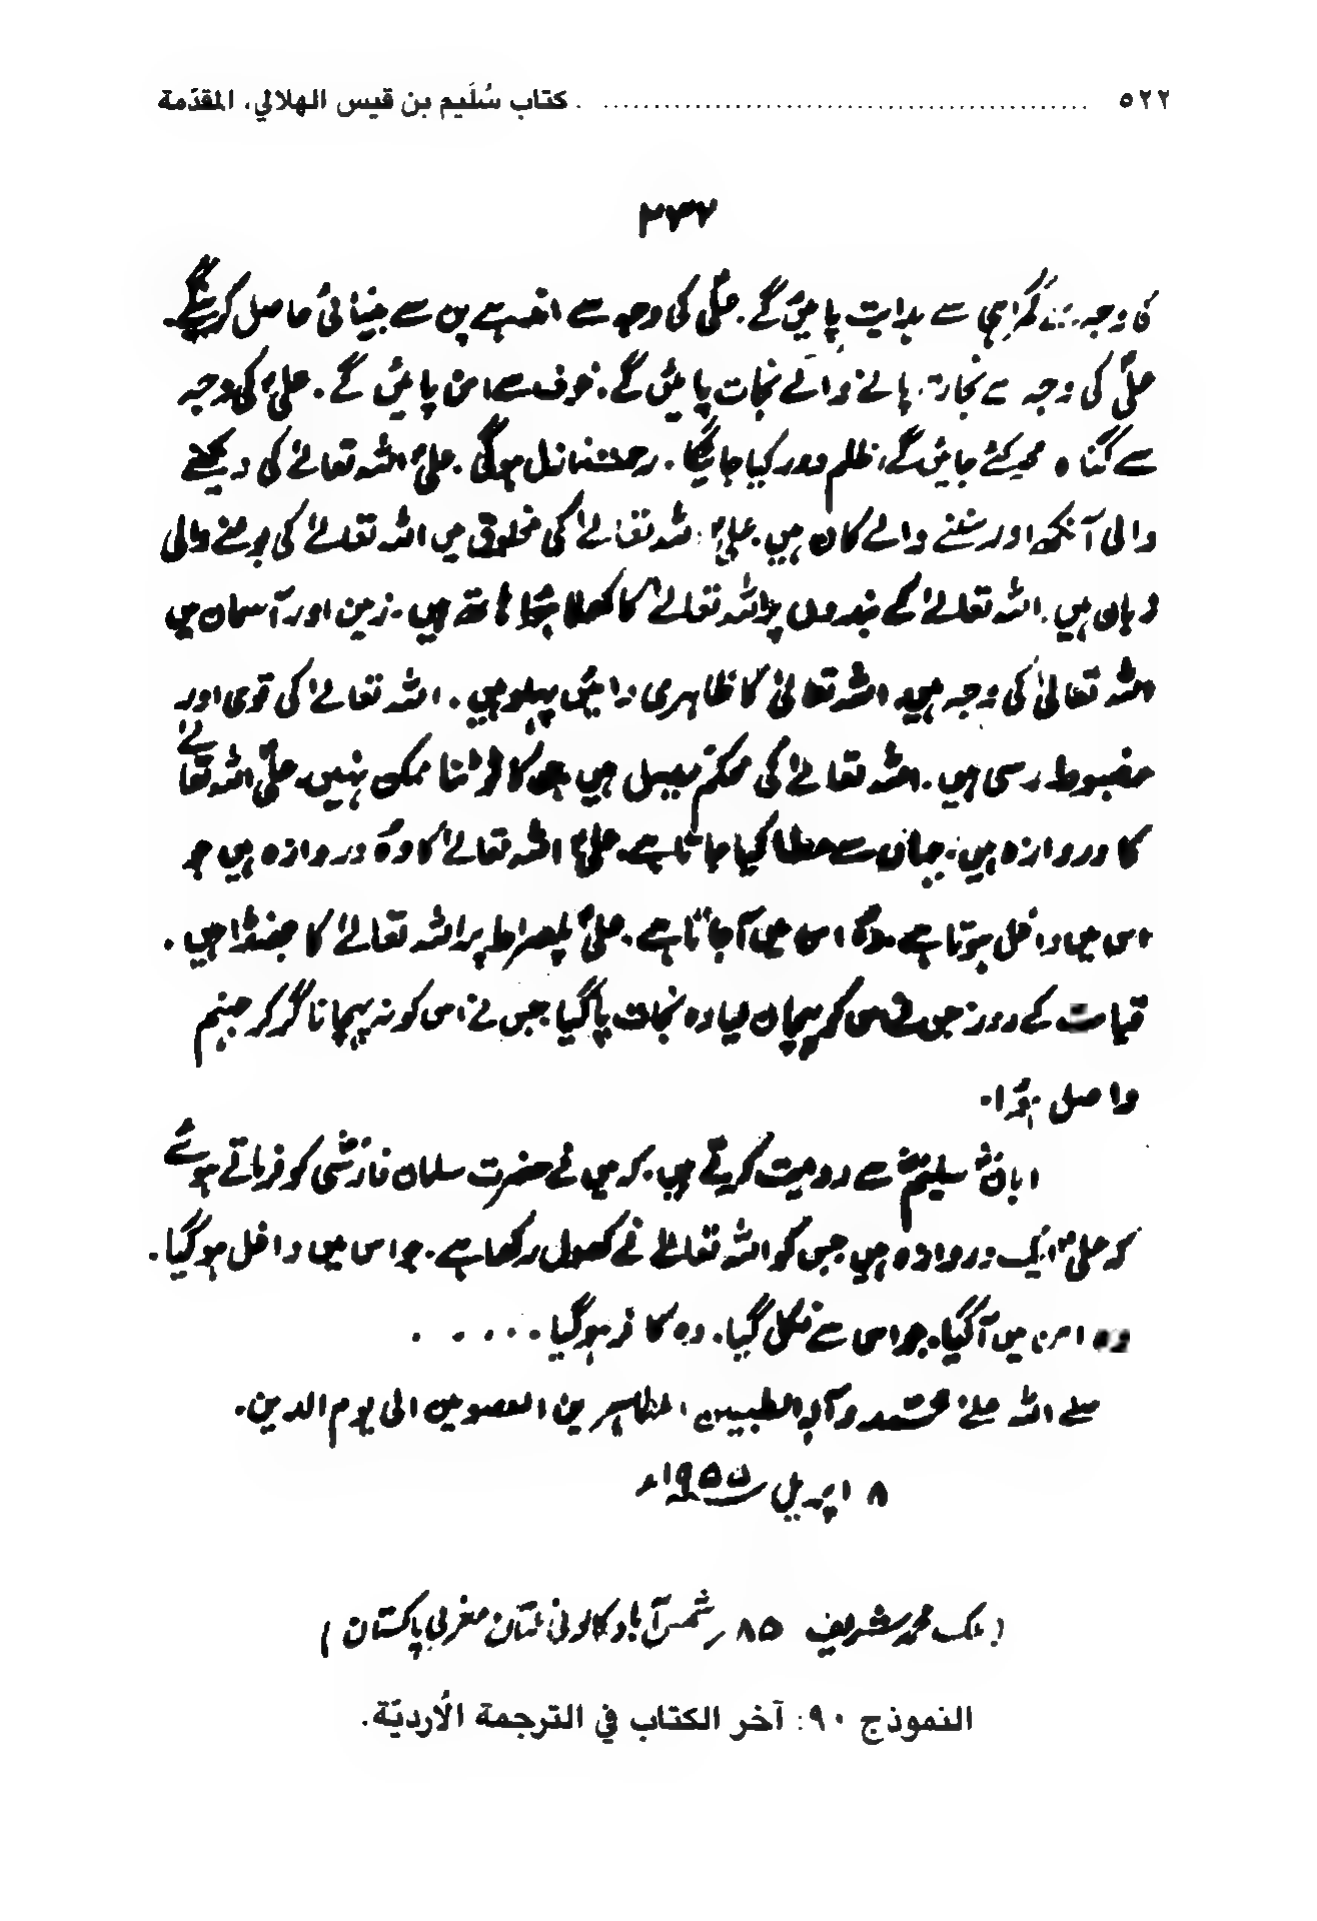 ٥٢٢ ........ كتاب سُلَيم بن قيس الهلالي، المقدّمة
٢٣٧
کی وجہ سے گمراہی سے ہدایت پائیں گے. علیؑ کی وجہ سے اندھے پن سے بینائی حاصل کرینگے.
علیؑ کی وجہ سے نجات پانے والے نجات پائیں گے. خوف سے امن پائیں گے. علیؑ کی وجہ
سے گناہ محو کئے جائیں گے، ظلم دور کیا جائیگا. رحمت نازل ہوگی. علیؑ اللہ تعالےٰ کی دیکھنے
والی آنکھ اور سننے والے کان ہیں. علیؑ اللہ تعالےٰ کی مخلوق میں اللہ تعالےٰ کی بولنے والی
زبان ہیں. اللہ تعالےٰ کے بندوں پر اللہ تعالےٰ کا کھلا ہوا ہاتھ ہیں. زمین اور آسمان میں
اللہ تعالیٰ کی وجہ ہیں. اللہ تعالیٰ کا ظاہری دائیں پہلو ہیں. اللہ تعالےٰ کی قوی اور
مضبوط رسی ہیں. اللہ تعالےٰ کی محکم سبیل ہیں جس کا ٹوٹنا ممکن نہیں. علیؑ اللہ تعالےٰ
کا دروازہ ہیں. جہاں سے عطا کیا جاتا ہے. علیؑ اللہ تعالےٰ کا وہ دروازہ ہیں جو
اس میں داخل ہوتا ہے. وہ امن میں آجاتا ہے. علیؑ پلصراط پر اللہ تعالےٰ کا جھنڈا ہیں.
قیامت کے روز جس نے اس کو پہچان لیا وہ نجات پا گیا جس نے اس کو نہ پہچانا گر کر جہنم
واصل ہوا.
ابانؓ سلیمؓ سے روایت کرتے ہیں. کہ میں نے حضرت سلمان فارسیؓ کو فرماتے ہوئے
کہ علیؑ ایک دروازہ ہیں جس کو اللہ تعالےٰ نے کھول رکھا ہے. جو اس میں داخل ہو گیا.
وہ امن میں آگیا. جو اس سے نکل گیا. وہ کافر ہو گیا . . . . . .
صلے اللہ علےٰ محمد وآلہ الطیبین الطاہرین المعصومین الی یوم الدین.
٨ اپریل ١٩٥٥ء
(ملک محمد شریف ٨٥ ر شمس آباد کالونی ملتان مغربی پاکستان)
النموذج ٩٠: آخر الكتاب في الترجمة الأرديّة.